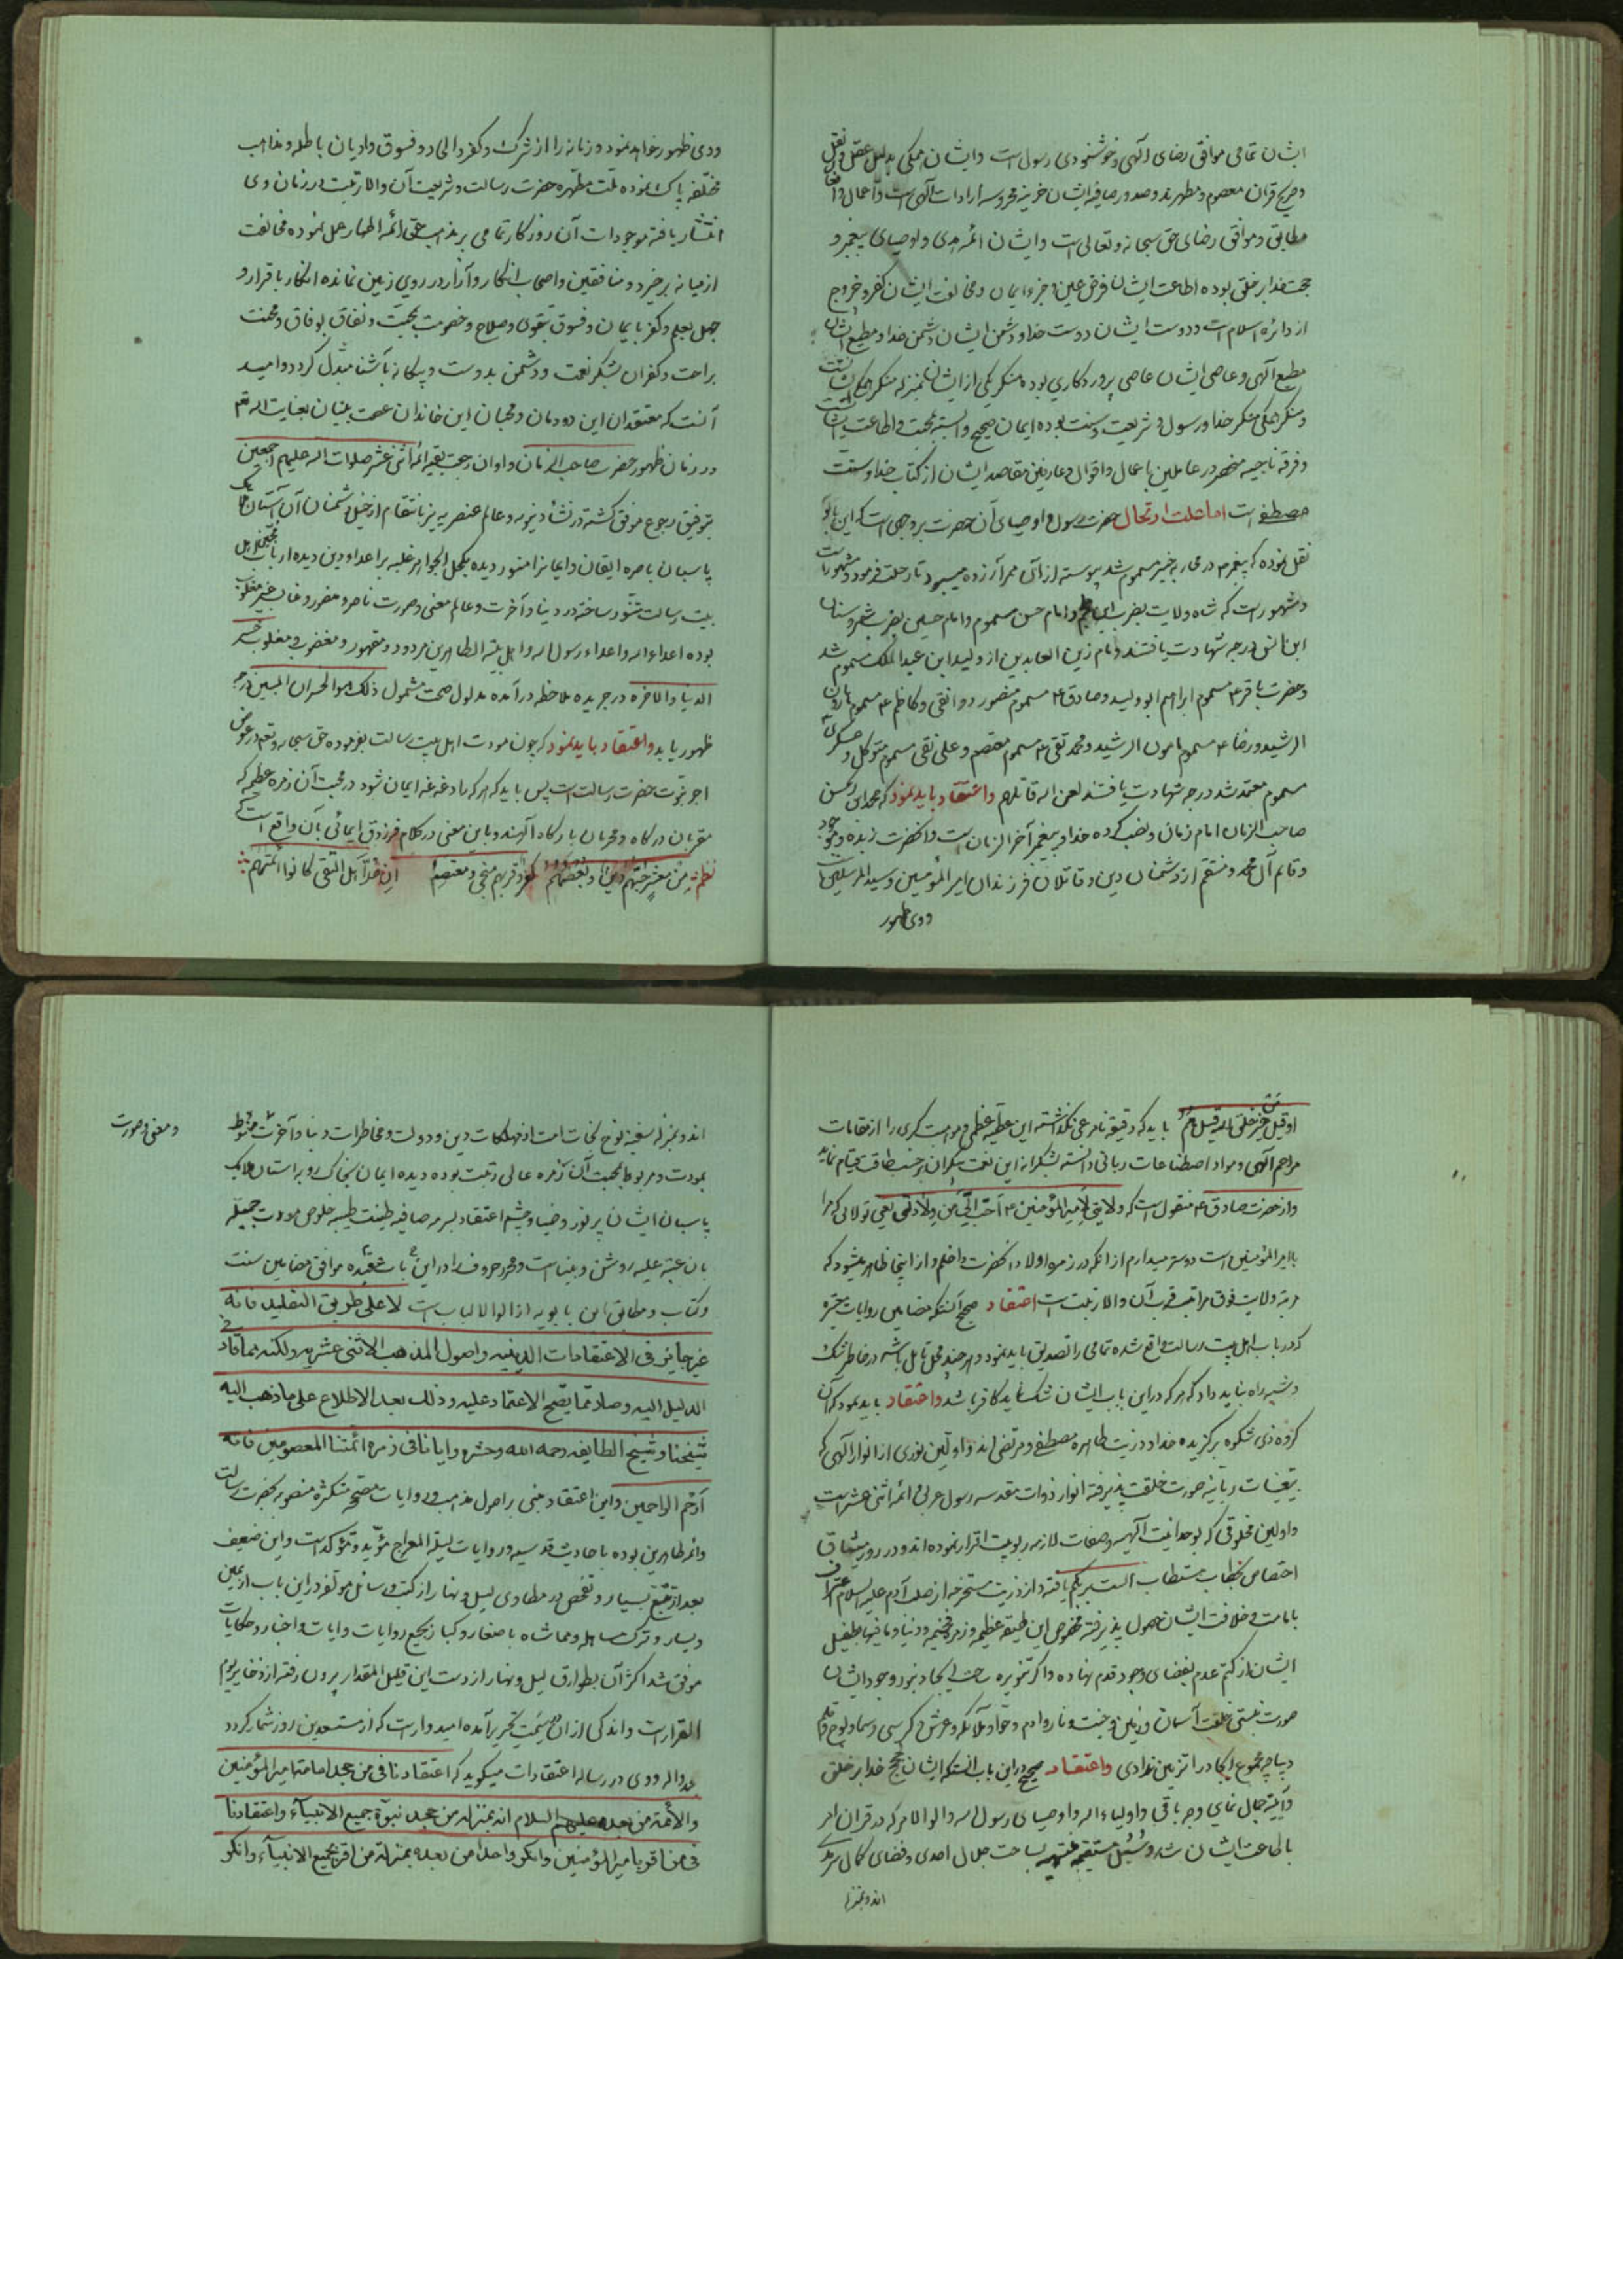 ایشان تمامی موافق رضای الهی و خوشنودی رسول است و ایشان همگی بدلیل عقل و نقل
و صریح قران معصوم و مطهرند و صدور صافیه ایشان خزینه محروسه ارادات الهی است و اعمال و افعال
مطابق و موافق رضای حق سبحانه و تعالی است و ایشان ائمه هدی و اوصیای پیغمبر و
حجت خدا بر خلق بوده اطاعت ایشان فرض عین و جزء ایمان و مخالفت ایشان کفر و خروج
از دائره اسلام است و دوست ایشان دوست خدا و دشمن ایشان دشمن خدا و مطیع ایشان
مطیع الهی و عاصی ایشان عاصی پروردگاری بوده منکر یکی از ایشان بمنزله منکر همگی ایشانست
و منکر همگی منکر خدا و رسول و شریعت و سنت بوده ایمان صحیح وابسته بمحبت و اطاعت ایشانست
و فرقه ناجیه منحصر در عاملین باعمال و اقوال و عارفین مقاصد ایشان از کتاب خدا و سنت
مصطفی است اما علت ارتحال حضرت رسول و اوصیای آن حضرت بر وجهی است که ابن بابویه
نقل نموده که پیغمبر در محاربه خیبر مسموم شد پیوسته از آن ممر آزرده میبود تا رحلت فرمود و مشهور است
و مشهور است که شاه ولایت بضرب ابن ملجم و امام حسن مسموم و امام حسین بضرب شمر و سنان
ابن انس درجه شهادت یافتند و امام زین العابدین از ولید ابن عبد الملک مسموم شد
و حضرت باقر ع مسموم ابراهیم ابو ولید و صادق ع مسموم منصور دوانقی و کاظم ع مسموم هارون
الرشید و رضا ع مسموم مامون الرشید و محمد تقی ع مسموم معتصم و علی نقی مسموم متوکل و عسکری
مسموم معتمد شد درجه شهادت یافتند لعن الله قاتلهم و اعتقاد باید نمود که محمد ابن الحسن
صاحب الزمان امام زمان و نصب کرده خدا و پیغمبر آخر الزمان است و آنحضرت زنده و موجود
و قایم آل محمد و منتقم از دشمنان دین و قاتلان فرزندان امیر المؤمنین و سید المرسلین است
و وی ظهور
و وی ظهور خواهد نمود و زمانه را از شرک و کفر و الحاد و فسوق و ادیان باطله و مذاهب
مختلفه پاک نموده ملت مطهره حضرت رسالت و شریعت آن والا رتبت در زمان وی
انتشار یافته موجودات آن روزگار تمامی بر مذهب حق ائمه اطهار عمل نموده مخالفت
از میانه برخیزد و منافقین و اصحاب انکار و آزار در روی زمین نمانده انکار باقرار و
جهل بعلم و کفر بایمان و فسوق بتقوی و صلاح و خصومت بمحبت و نفاق بوفاق و محنت
براحت و کفران بشکر نعمت و دشمن بدوست و بیگانه بآشنا مبدل گردد و امید
آنست که معتقدان این دودمان و محبان این خاندان عصمت بنیان بعنایت اله تع
در زمان ظهور حضرت صاحب الزمان و اوان رجعت بقیه ائمه اثنی عشر صلوات الله علیهم اجمعین
بتوفیق رجوع موفق گشته در نشاه دنیویه و عالم عنصریه نیز بانتقام از خیل دشمنان آن آستان ملایک
پاسبان باصره ایقان و ایمانرا منور دیده بکحل الجواهر غلبه بر اعداء دین دیده ارباب محبت اهل
بیت رسالت منور ساخته در دنیا و آخرت و عالم معنی و صورت ناصر و منصور و غالب غیر مغلوب
بوده اعداء الله و اعداء رسول الله و اهل بیته الطاهرین مردود و مقهور و مغضوب و مغلوب خسر
الدنیا و الاخره در جریده ملاحظه درآمده مدلول صحت مشمول ذلک هو الخسران المبین درجه
ظهور یابد و اعتقاد باید نمود که چون مودت اهل بیت رسالت بفرموده حق سبحانه و تعالی در عوض
اجر نبوت حضرت رسالت است پس باید که هر که را دغدغه ایمان شود در محبت آن زمره عظیمه که
مقربان درگاه و محرمان بارگاه الهند و باین معنی در کلام فرزدق ایمائی بآن واقع است
نظم من معشر حبهم دین و بغضهم کفر و قربهم منجی و معتصم ان عد اهل التقی کانوا ائمتهم
او قیل من خیر خلق الله قیل هم باید که دقیقه نامرعی نگذاشته این عطیه عظمی و موهبت کبری را از مقامات
مراحم الهی و مواد اصطناعات ربانی دانسته بشکرانه این نعمت بیکران بر حسب طاقت قیام نماید
و از حضرت صادق ع منقول است که ولایتی لامیر المؤمنین ع احب الی من ولادتی یعنی تولائی که مرا
بامیر المؤمنین است دوستر میدارم از انکه در زمره اولاد آنحضرت داخلم و از اینجا ظاهر میشود که
مرتبه ولایت فوق مراتب قرب آن والا رتبت است اعتقاد صحیح آنستکه مضامین روایات معتبره
که در باب اهل بیت رسالت واقع شده تمامی را تصدیق باید نمود و هر چند محل تامل باشد در خاطر شک
و شبهه راه نباید داد که هر که در این باب ایشان شک نماید کافر باشد و اعتقاد باید نمود که آن
گروه ذی شکوه برگزیده خدا و ذریت طاهره مصطفی و مرتضی اند و اولین نوری از انوار الهی که
بتعینات ربانیه صورت خلقت پذیرفته انوار ذوات مقدسه رسول عربی و ائمه اثنی عشر است
و اولین مخلوقی که بوحدانیت آلهیه و صفات لازمه ربوبیت اقرار نموده اند و در روز میثاق
اختصاص بخطاب مستطاب الست بربکم یافته و از ذریت مستخرجه از صلب آدم علیه السلام اعتراف
بامامت و خلافت ایشان حصول پذیرفته مخصوص این طبقه عظیم و زمره فخیمه و دنیا و مافیها بطفیل
ایشان از کتم عدم بفضای وجود قدم نهاده و اگر تنویره ساحت ایجاد بنور وجود ایشان
صورت نبستی خلقت آسمان و زمین و جنت و نار و آدم و حوا و ملائکه و عرش و کرسی و سما و لوح و قلم
دیباچه مجموع ایجاد را تزیین ندادی و اعتقاد صحیح در این باب آنستکه ایشان حجج خدا بر خلق
و آیینه جمال نمای وجه باقی و اولیاء اله و اوصیای رسول اله و اولو الامر که در قران امر
باطاعت ایشان شده و سبیل مستقیمه منتهیه بساحت جلال احدی و فضای کمال سرمدی
اند و بمنزله
اند و بمنزله سفینه نوح نجات امت از مهلکات دین و دولت و مخاطرات دنیا و آخرت منوط
و معنی و صورت
بمودت و مربوط بمحبت آن زمره عالی رتبت بوده دیده ایمان بخاکروبه آستان ملایک
پاسبان ایشان پرنور و ضیا و چشم اعتقاد بسرمه صافیه طینت طیبه خلوص مودت جمیله
بان عتبه علیه روشن و بیناست و محرر حروف را در این باب عقیده موافق مضامین سنت
و کتاب و مطابق ابن بابویه از اولو الالباب است لا علی طریق التقلید فانه
غیر جایز فی الاعتقادات الدینیه و اصول المذهب الاثنی عشریه ولکنه بما قاد فی
الدلیل الیه و صار مما یصح الاعتماد علیه و ذلک بعد الاطلاع علی ما ذهب الیه
شیخنا و شیخ الطایفه رحمه الله و حشره و ایانا فی زمره ائمتنا المعصومین فانه
ارحم الراحمین و این اعتقاد مبنی بر اصول مذهب و روایات صحیحه متکثره منصوبه بحضرت رسالت
و ائمه طاهرین بوده باحادیث قدسیه و روایات لیله المعراج مؤید و مؤکد است و این ضعیف
بعد از تتبع بسیار و تفحص در مطاوی لیل و نهار از کتب و رسائل مولفه در این باب از یمین
و یسار و ترک مساهله و مماشاه با صغار و کبار بجمیع روایات و ایات و اخبار و حکایات
موفق شد اکثر آن بطوارق لیل و نهار از دست این قلیل المقدار بیرون رفته از ذخایر یوم
القرار است و اندکی از ان بسمت تحریر آمده امیدوار است که از مستعدین روز شمار گردد
عدواله و وی در رساله اعتقادات میگوید که اعتقادنا فی من جحد امامة امیر المؤمنین
والأئمة من بعده علیهم السلام انه بمنزلة من جحد نبوة جمیع الانبیآء و اعتقادنا
فی من اقر بامیر المؤمنین و انکر واحدا من بعده بمنزلة من اقر بجمیع الانبیآء و انکر